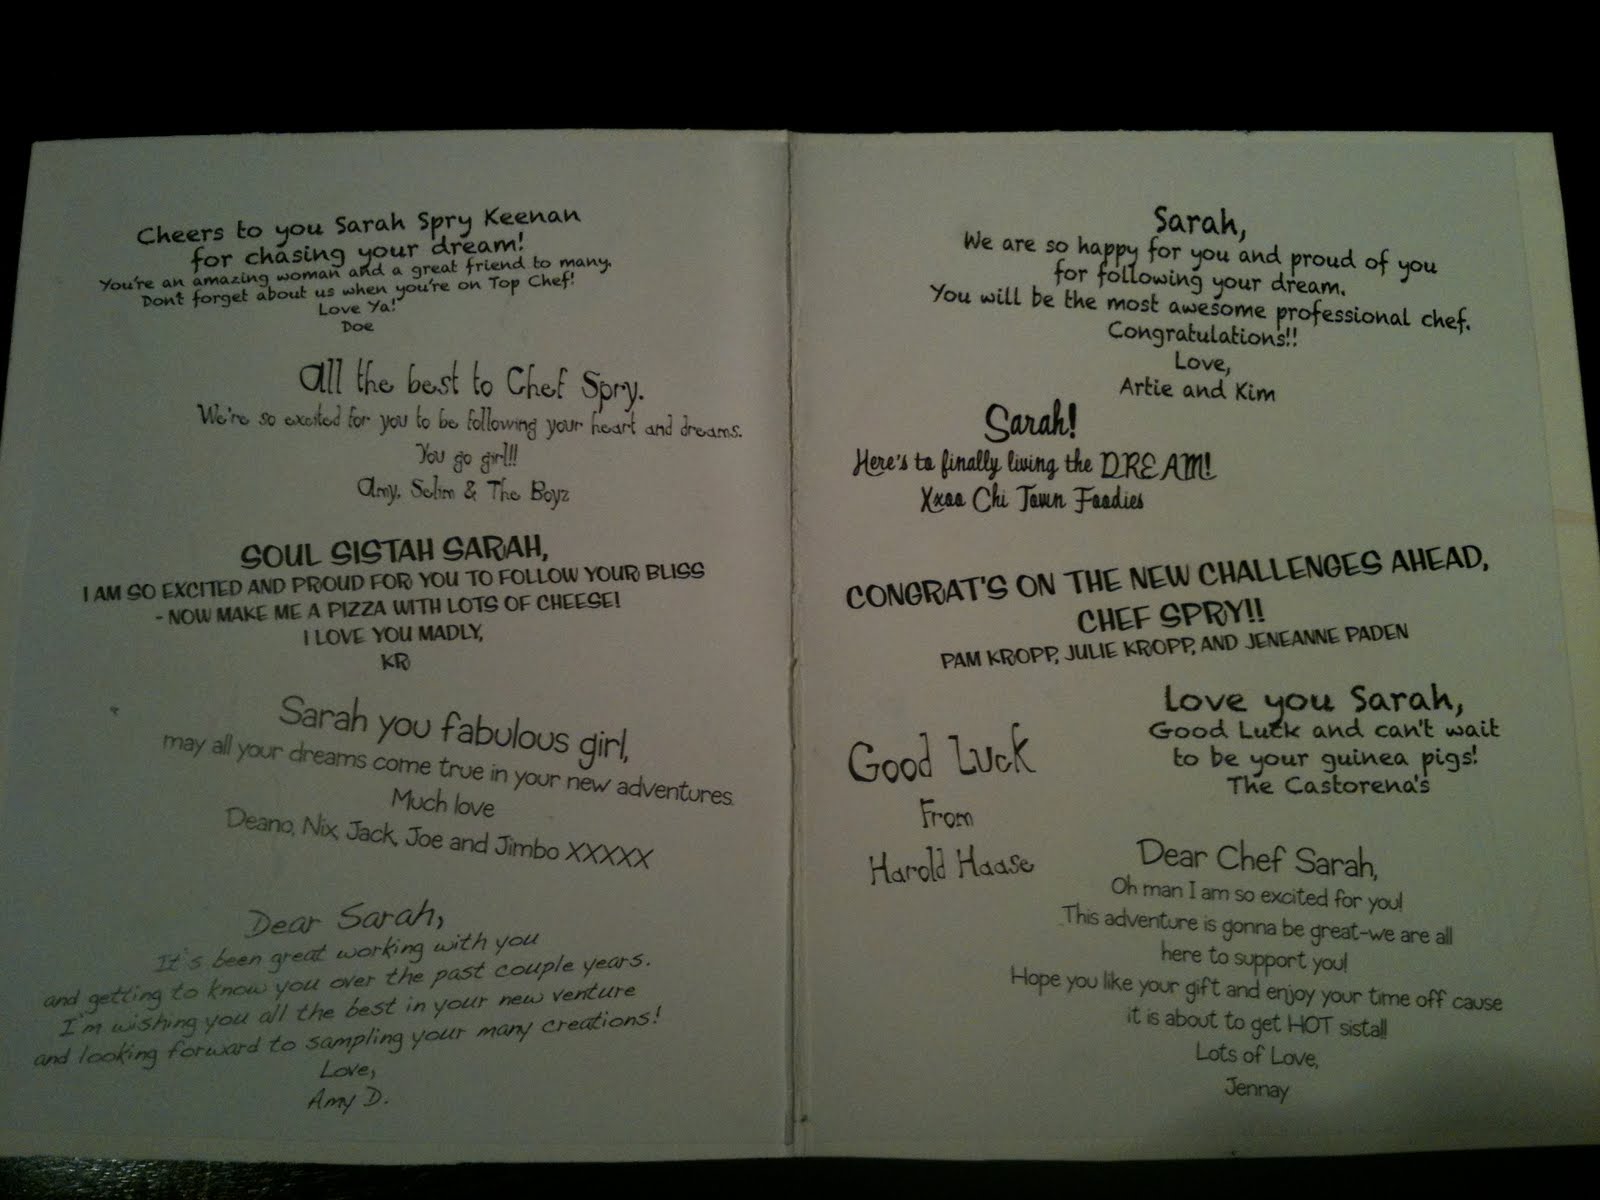 Cheers to you Sarah Spry Keenan
for chasing your dream!
You're an amazing woman and a great friend to many.
Don't forget about us when you're on Top Chef!
Love Ya!
Doe
All the best to Chef Spry.
We're so excited for you to be following your heart and dreams.
You go girl!!
Amy, Selim & The Boyz
SOUL SISTAH SARAH,
I AM SO EXCITED AND PROUD FOR YOU TO FOLLOW YOUR BLISS
- NOW MAKE ME A PIZZA WITH LOTS OF CHEESE!
I LOVE YOU MADLY,
KR
Sarah you fabulous girl,
may all your dreams come true in your new adventures.
Much love
Deano, Nix, Jack, Joe and Jimbo XXXXX
Dear Sarah,
It's been great working with you
and getting to know you over the past couple years.
I'm wishing you all the best in your new venture
and looking forward to sampling your many creations!
Love,
Amy D.
Sarah,
We are so happy for you and proud of you
for following your dream.
You will be the most awesome professional chef.
Congratulations!!
Love,
Artie and Kim
Sarah!
Here's to finally living the DREAM!
Xxoo Chi Town Foodies
CONGRAT'S ON THE NEW CHALLENGES AHEAD,
CHEF SPRY!!
PAM KROPP, JULIE KROPP, AND JENEANNE PADEN
Good Luck
From
Harold Haase
Love you Sarah,
Good Luck and can't wait
to be your guinea pigs!
The Castorena's
Dear Chef Sarah,
Oh man I am so excited for you!
This adventure is gonna be great-we are all
here to support you!
Hope you like your gift and enjoy your time off cause
it is about to get HOT sista!!
Lots of Love,
Jennay